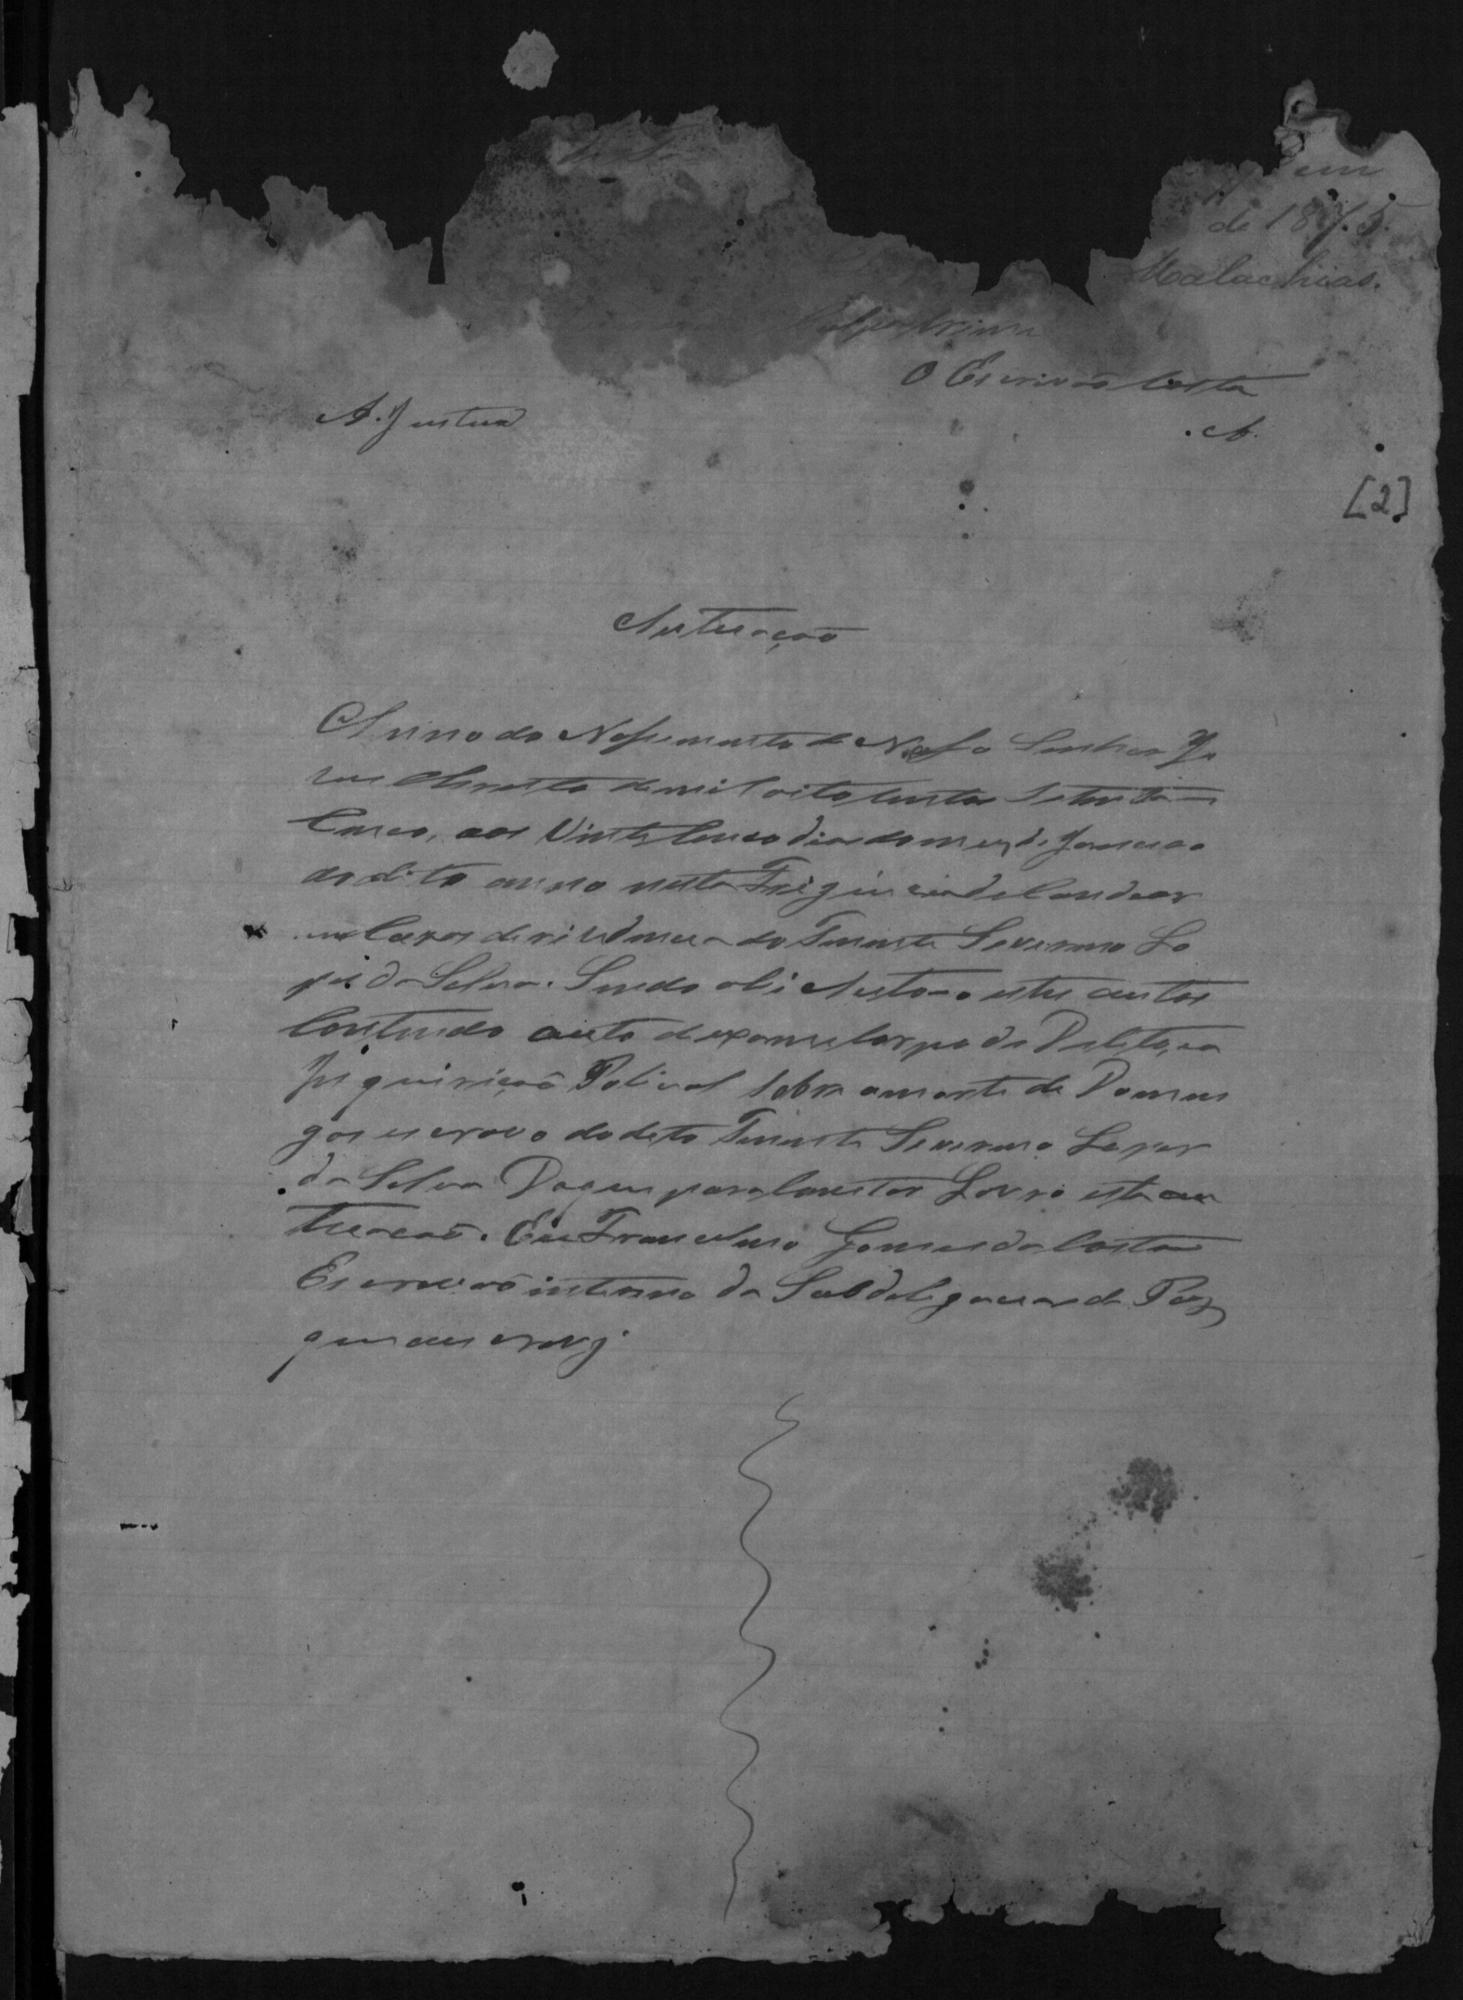 em
de 1875.
Malachias.
O Escrivão Costa
A. Justiça
[2]
Autuação
Anno do Nascimento de Nosso Senhor Je
sus Christo de mil oito centos setenta e
Cinco, aos Vinte Cinco dias do mez de Janeiro
do dito anno nesta Freguezia de
em Cazas de rizidencia do Tenente Severino Lo
pes da Silva. Sendo ahi Autoo estes autos
Contendo auto de exame Corpo de Delito, e a
Inquirição Policial sobre a morte de Domin
gos escravo do dito Tenente Severino Lopes
da Silva Do que para Constar Lavro esta au
tuação. Eu Francelino Gomes da Costa
Escrivão interino da Subdelegacia de Paz
que o escrevy